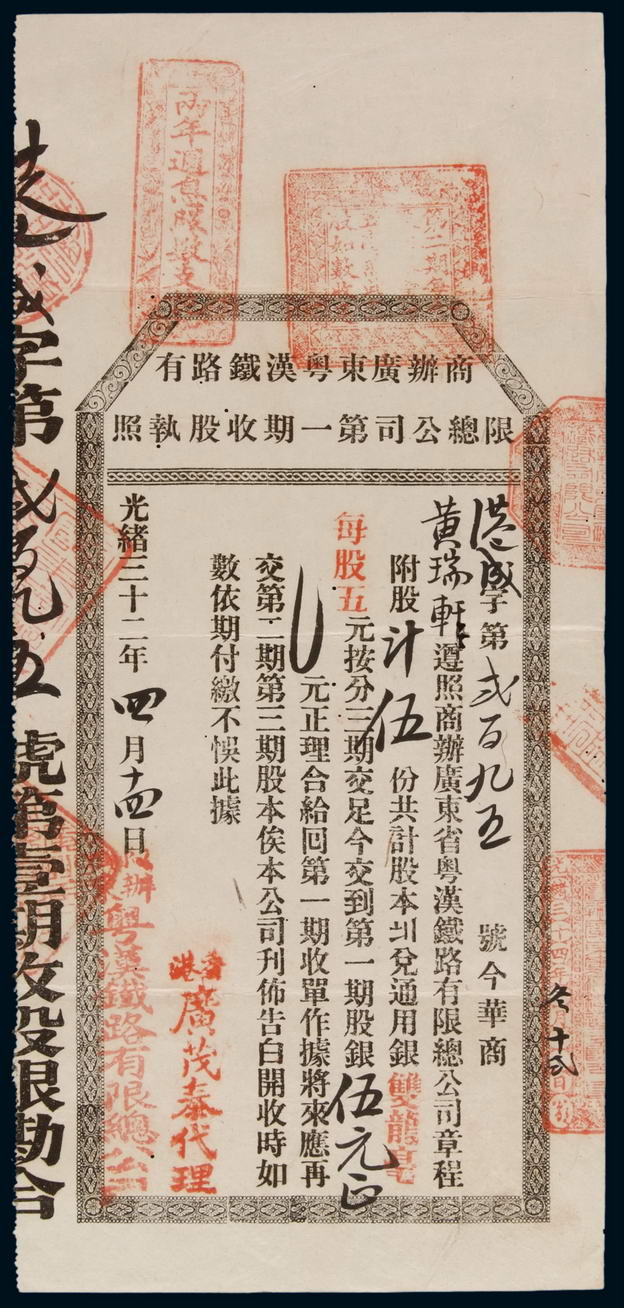 商辦廣東粤漢鐵路有
限總公司第一期收股執照
港盛字第弍百九五號今華商
黄瑞軒遵照商辦廣東省粤漢鐵路有限總公司章程
附股計伍份共計股本㘝兌通用銀雙龍毫
每股五元按分三期交足今交到第一期股銀伍元正
元正理合給回第一期收單作據將來應再
交第二期第三期股本俟本公司刊佈告白開收時如
數依期付繳不悞此據
光緒三十二年四月十四日
香港廣茂泰代理
粤漢鐵路有限總公司
兩年週息股數支
第二期
光緒三十四年
冬十弍日
字第弍百九五號第壹期收股銀勘合